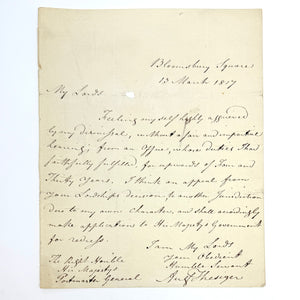 Bloomsbury Square
13 March 1817
My Lords
Feeling myself highly aggrieved
by my dismissal, without a fair and impartial
hearing; from an Office, whose duties I have
faithfully fulfilled for upwards of Four and
Thirty Years. I think an appeal from
your Lordships decision to another Jurisdiction
due to my own Character, and shall accordingly
make application to His Majesty's Government
for redress.
I am My Lords
Your Obedient
Humble Servant
The Right Honble
His Majestys
Postmaster General